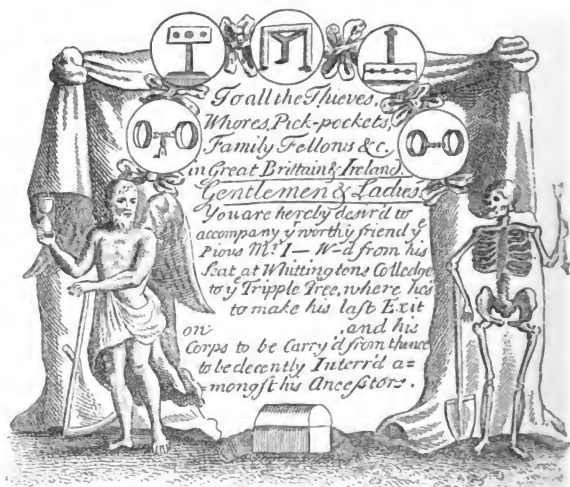 To all the Thieves,
Whores, Pick-pockets,
Family Fellons &c.
in Great Brittain & Ireland.
Gentlemen & Ladies
You are hereby desir'd to
accompany yͤ worthy friend yͤ
Pious Mͬ. I— W—d from his
Seat at Whittingtons Colledge
to yͤ Tripple Tree, where he's
to make his last Exit
on , and his
Corps to be Carry'd from thence
to be decently Interr'd a=
=mongst his Ancestors.